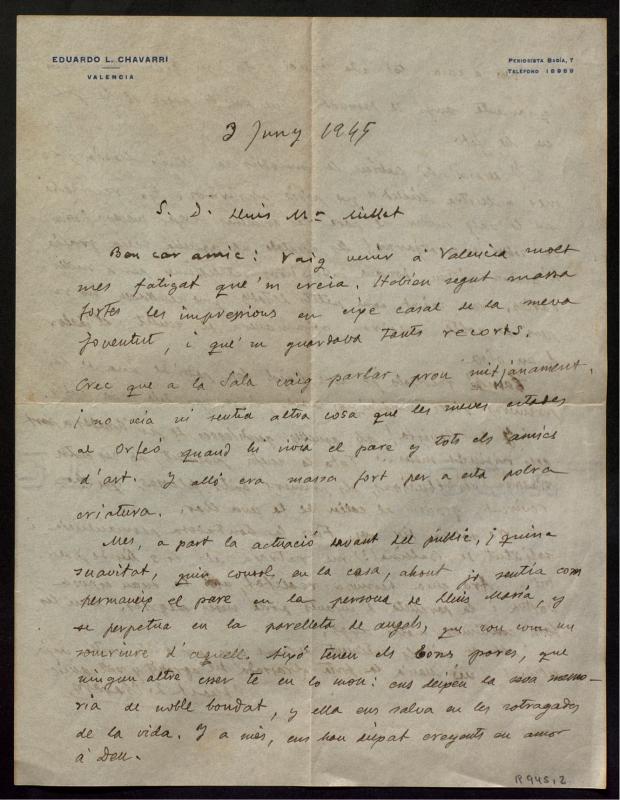 EDUARDO L. CHAVARRI
VALENCIA
PERIODISTA BADÍA, 7
TELÉFONO 18969
3 Juny 1945
S. D. Lluis Mª Millet
Bon car amic: Vaig venir á Valencia molt
mes fatigat que'm creia. Habien segut massa
fortes les impressions en eixe casal de la meva
joventut, i que'm guardava tants recorts.
Crec que a la Sala vaig parlar prou mitjánament.
¡ no veia ni sentia altra cosa que les meves estades
al Orfeó quand hi vivia el pare y tots els amics
d'art. Y alló era massa fort per a esta pobra
criatura.
Mes, a part la actuació davant del públic, ¡ quina
suavitat, quin consol en la casa, ahont jo sentia com
permaneix el pare en la persona de Lluis María, y
se perpetua en la parelleta de angels, que son com un
somriure d'aquell. Aixó tenen els bons pares, que
ningun altre esser te en lo mon: ens deixen la seva memo-
ria de noble bondat, y ella ens salva en les sotragades
de la vida. Y a més, ens han deixat creyents en amor
á Deu.
R 945, 2